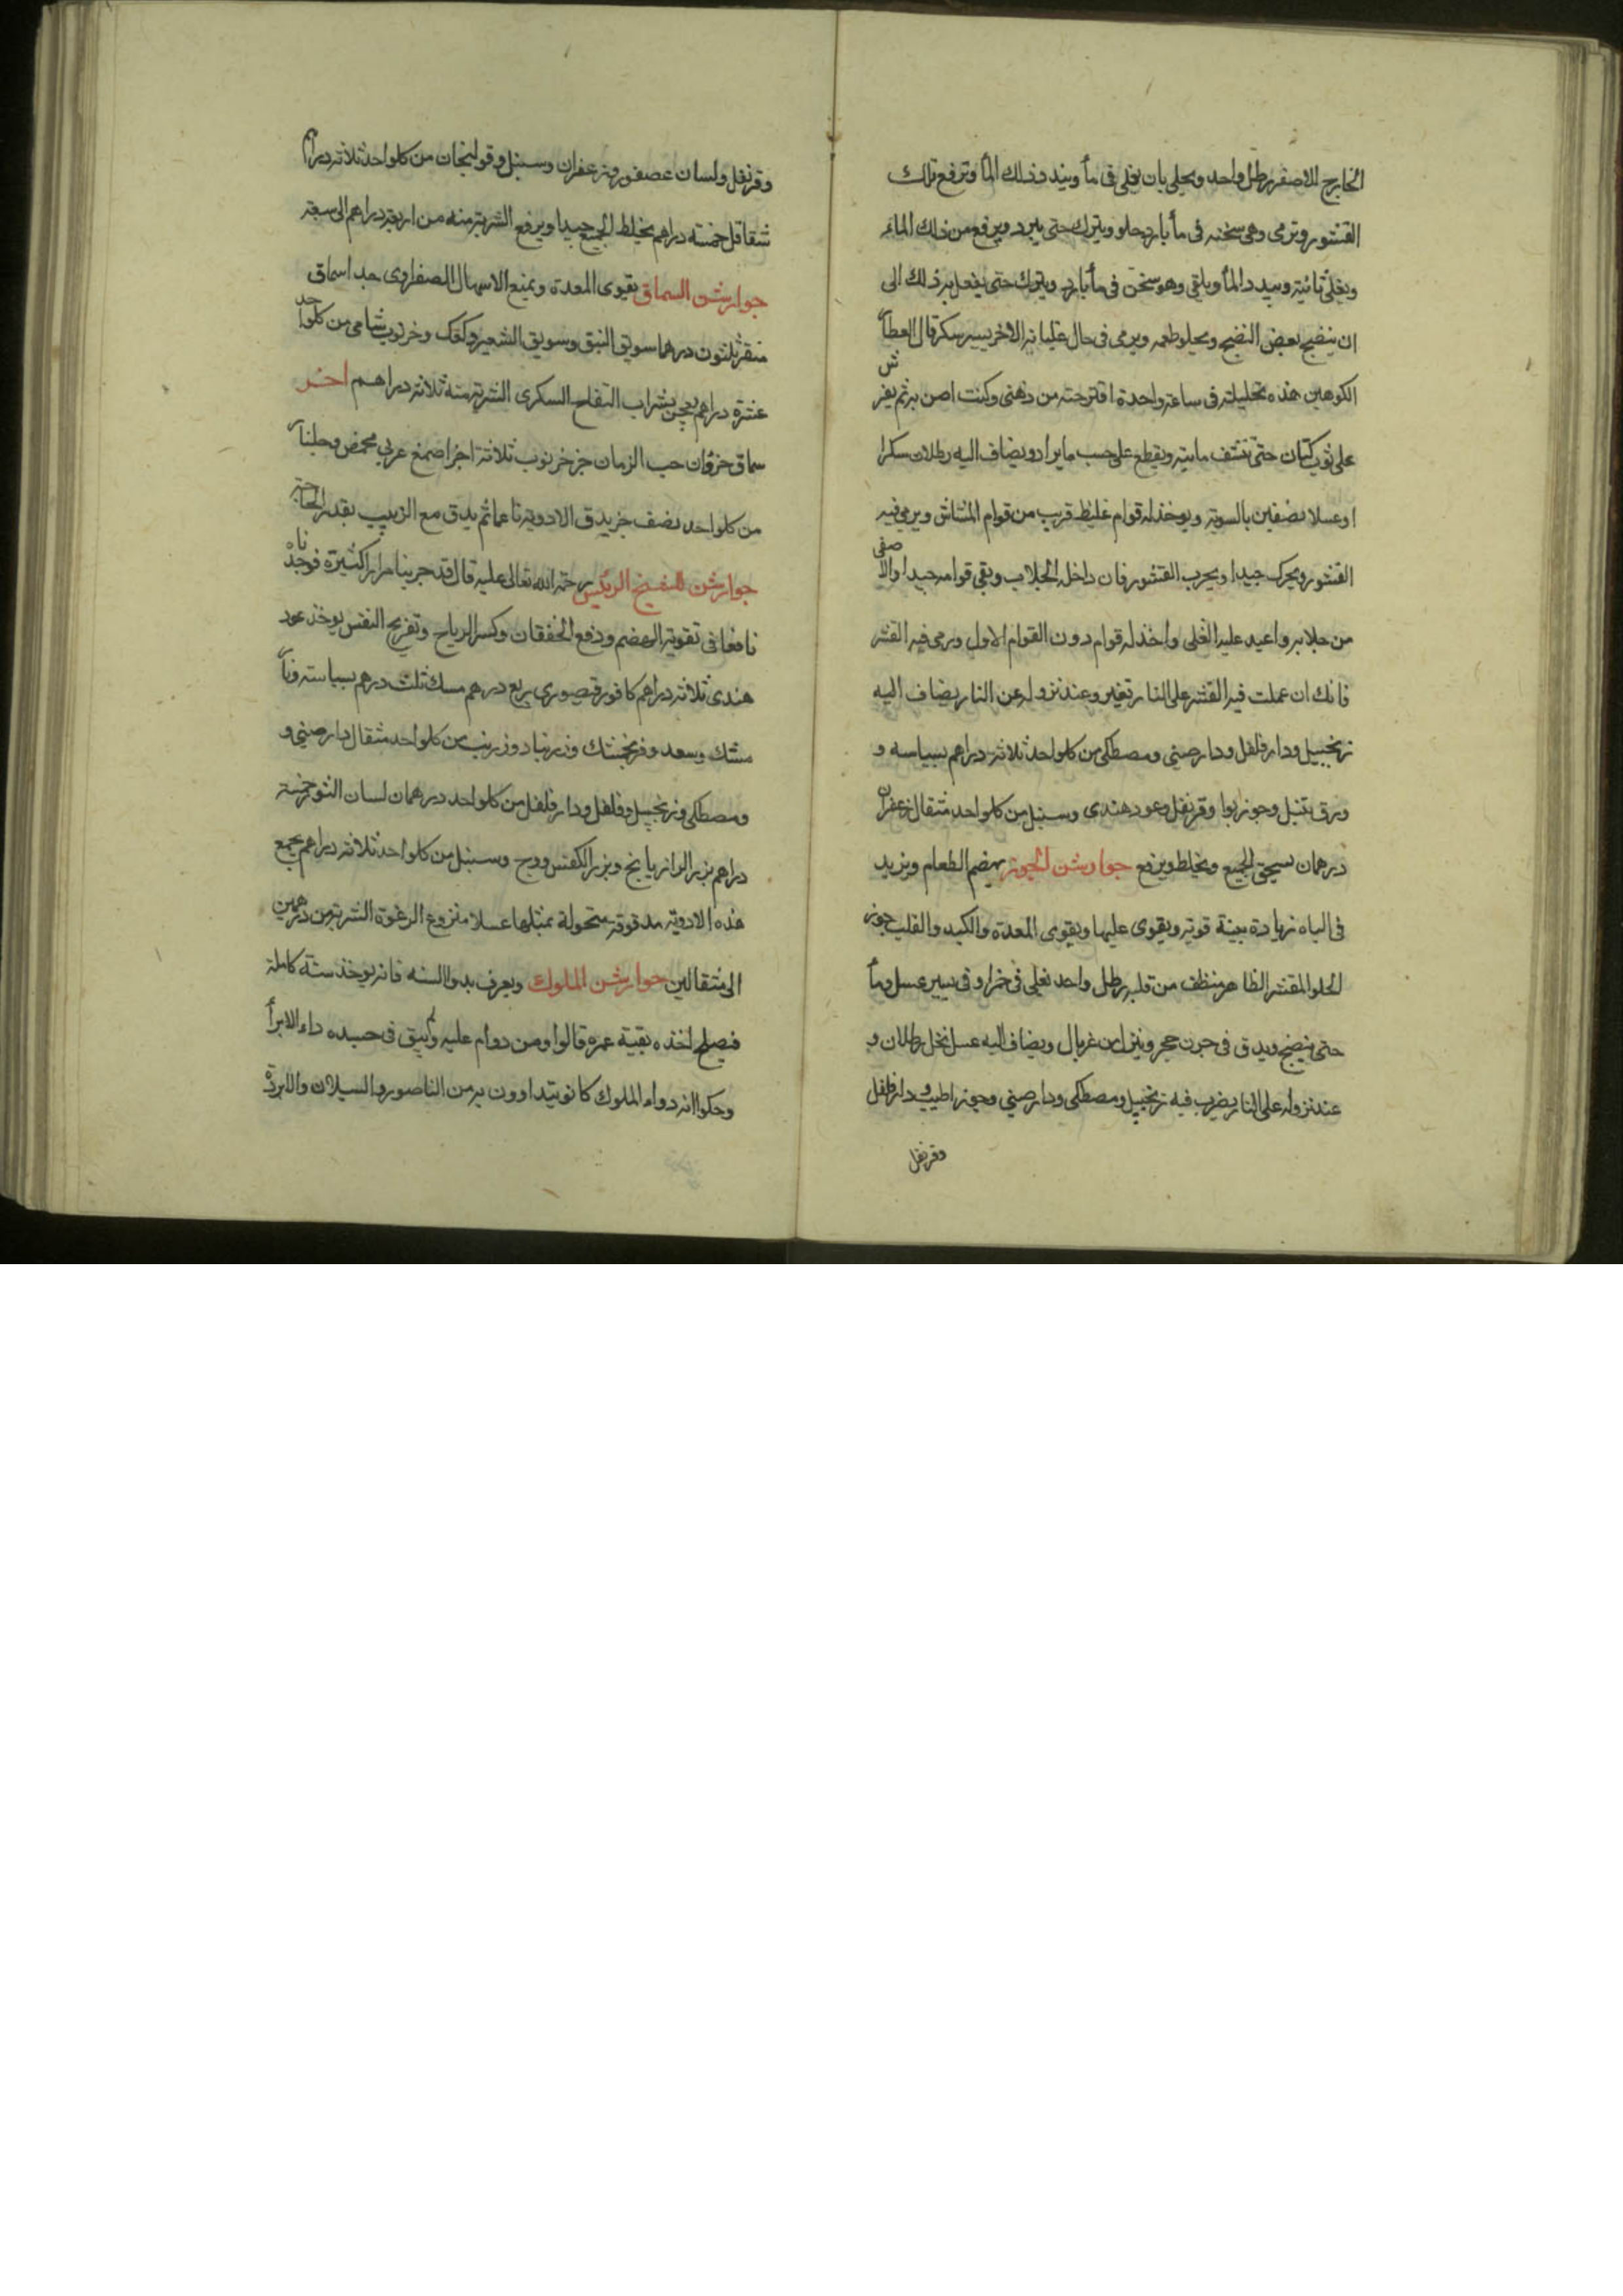 الخارج الاصفر رطل واحد ويحلى بان يغلى فى مأ ويبدد ذلك المأ وترفع تلك
القشور وترمى وهى سخنه فى مأ بارد حلو ويترك حتى يبرد ويرفع من ذلك الماء
ويغلى ثانية ويبدد المأ ويلقى وهو سخن فى مأ بارد ويترك حتى يفعل به ذلك الى
ان ينضج بعض النضج ويحلو طعمه ويرمى فى حال غليانه الاخر يسير سكر قال العطار
الكوهين هذه تحليلته فى ساعة واحدة اقترحته من ذهنى وكنت اصن به ثم يفرش
على ثوب كتان حتى تنشف مايته ويقطع على حسب ما يراد ويضاف اليه رطلان سكرا
او عسلا نصفين بالسوية ويوخذ له قوام غليظ قريب من قوام المشاش ويرمى فيه
القشور ويحرك جيدا ويجرب القشور فان داخله الجلاب وبقى قوامه جيدا والا صفى
من جلابه واعيد عليه الغلى واخذ له قوام دون القوام الاول ورمى فيه القشر
فانك ان عملت فيه القشر على النار تغير وعند نزوله عن النار يضاف اليه
زنجبيل ودار فلفل ودار صينى ومصطكى من كلواحد ثلاثة دراهم بسباسه و
ورق تنبل وجوز بوا وقرنفل وعود هندى وسنبل من كلواحد مثقال زعفران
درهمان يسحق الجميع ويخلط ويرفع جوارشن الجوز يهضم الطعام ويزيد
فى الباه زيادة بينة قوية ويقوى عليها ويقوى المعدة والكبد والقلب جوز
الحلو المقشر الظاهر منظف من قلبه رطل واحد يغلى فى خمر او فى يسير عسل ومأ
حتى ينضج ويدق فى جرن حجر وينزل من غربال ويضاف اليه عسل نحل رطلان و
عند نزوله على النار يضرب فيه زنجبيل ومصطكى ودار صينى وجوز الطيب ودار فلفل
وقرنفل
وقرنفل ولسان عصفور وزعفران وسنبل وقولنجان من كلواحد ثلاثة دراهم
شقاقل خمسة دراهم يخلط الجميع جيدا ويرفع الشربة منه من اربعة دراهم الى سبعة
جوارشن السماق يقوى المعدة ويمنع الاسهال الصفراوى جدا سماق
منقى ثلثون درهما سويق النبق وسويق الشعير وكعك وخرنوب شامى من كلواحد
عشرة دراهم يعجن بشراب التفاح السكرى الشربة منه ثلاثة دراهم اخر
سماق جزوان حب الرمان جز خرنوب ثلاثة اجزا صمغ عربى محمص وجلنار
من كلواحد نصف جز يدق الادوية ناعما ثم يدق مع الزبيب بقدر الحاجة
جوارشن للشيخ الرئيس رحمة الله تعالى عليه قال قد جربنا مرارا كثيرة فوجدناه
نافعا فى تقوية الهضم ودفع الخفقان وكسر الرياح وتفريح النفس يوخذ عود
هندى ثلاثة دراهم كافور قيصورى ربع درهم مسك ثلث درهم بسباسة ونار
مشك وسعد وفرنجمشك وزرنباد وزرنب من كلواحد مثقال دار صينى و
ومصطكى وزنجبيل وفلفل ودار فلفل من كلواحد درهمان لسان الثور خمسة
دراهم بزر الرازيانج وبزر الكفس ووج وسنبل من كلواحد ثلاثة دراهم يجمع
هذه الادوية مدقوقة منخولة بمثلها عسلا منزوع الرغوة الشربة من درهمين
الى مثقالين جوارشن الملوك ويعرف بدوا السنه فانه يوخذ سنة كاملة
فيصلح اخذه بقية عمره قالوا ومن دوام عليه لم يبق فى جسده داء الا برأ
وحكوا انه دواء الملوك كانو يتداوون به من الناصور والسيلان والابردة